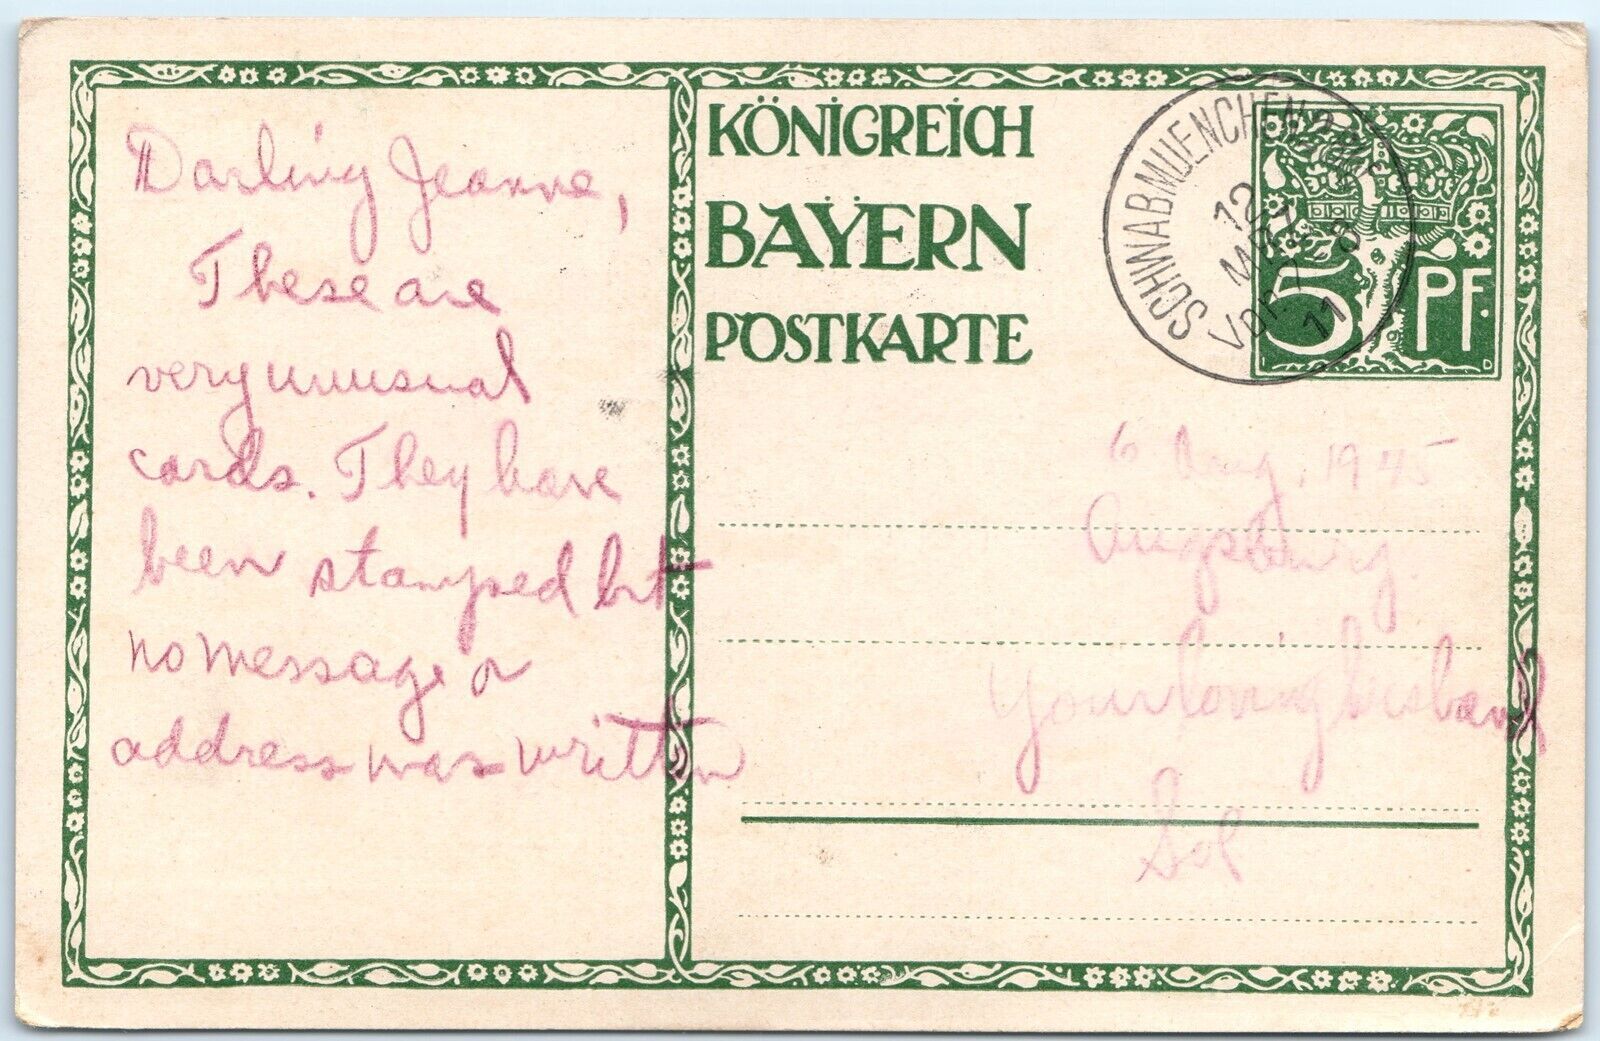 Darling Jeanne,
These are
very unusual
cards. They have
been stamped but
no message or
address was written
KÖNIGREICH
BAYERN
POSTKARTE
SCHWABMUENCHEN
12
MRZ
VOR. 7-8
11
5 PF.
6 Aug, 1945
Augsburg.
Your loving husband
Sol